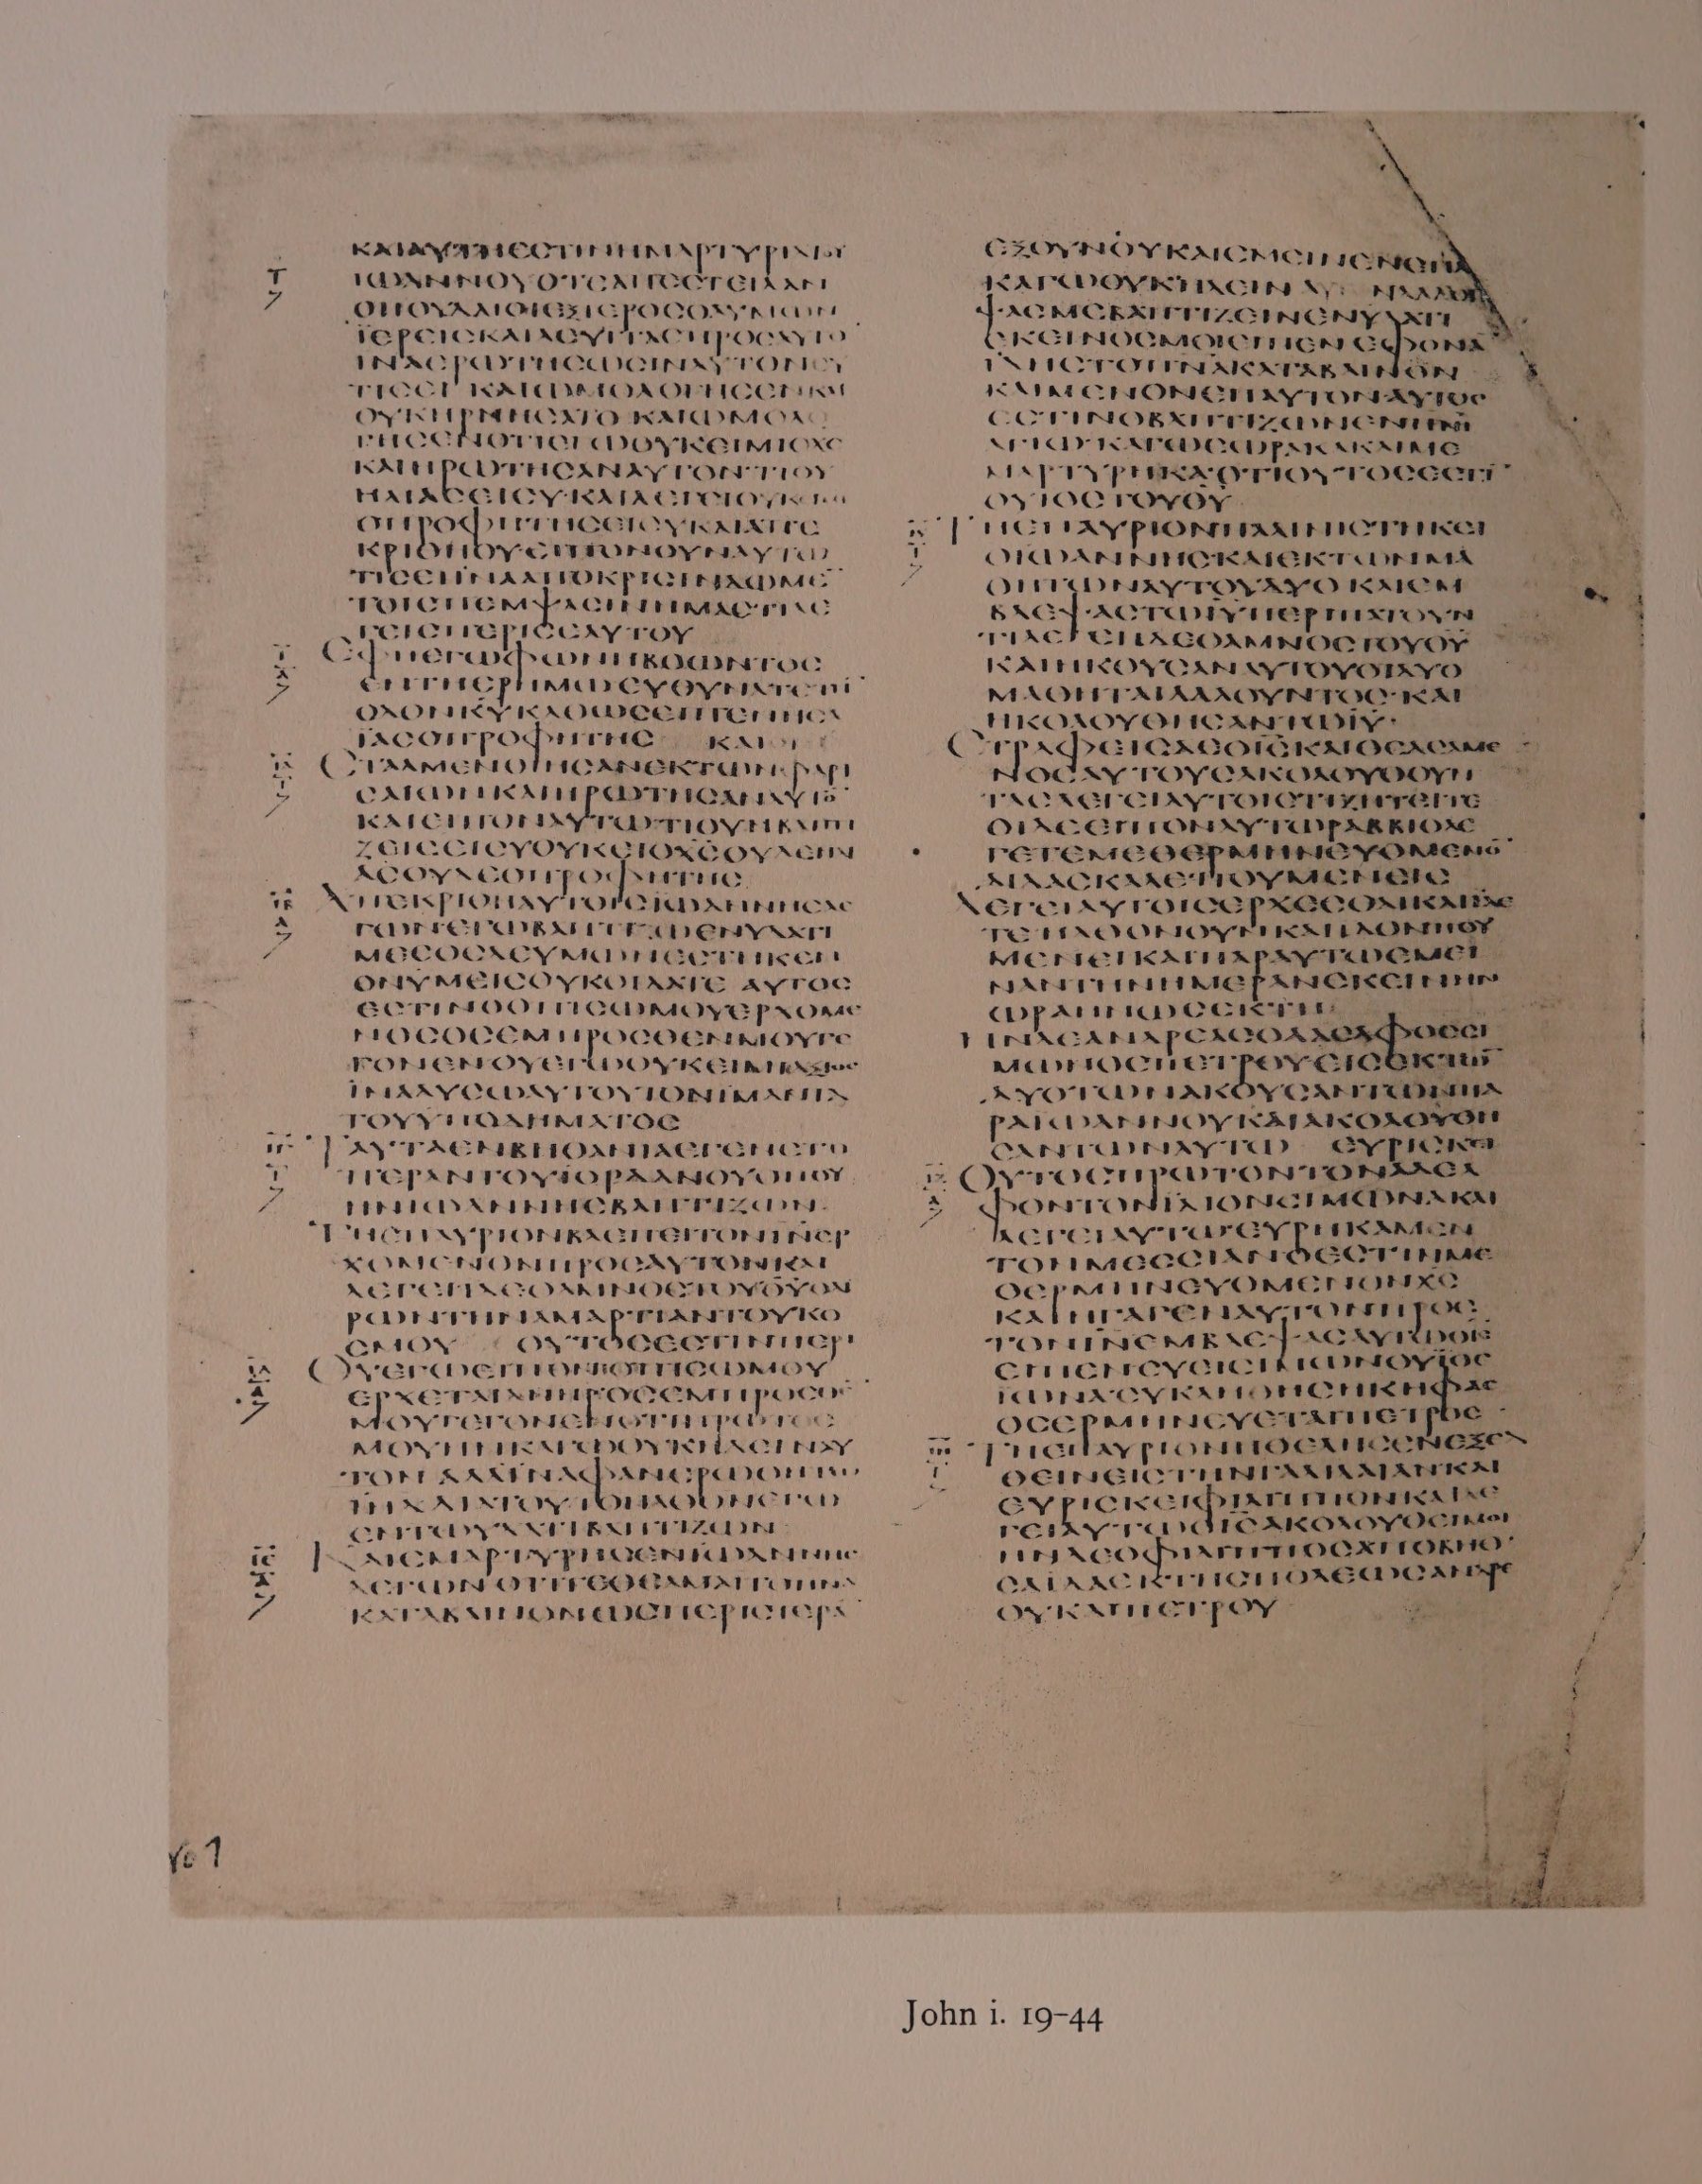 ΚΑΙΑΥΤΗΕϹΤΙΝΗΜΑΡΤΥΡΙΑΤΟΥ
ΙΩΑΝΝΟΥΟΤΕΑΠΕϹΤΕΙΛΑΝ
ΟΙΙΟΥΔΑΙΟΙΕΞΙΕΡΟϹΟΛΥΜΩΝ
ΪΕΡΕΙϹΚΑΙΛΕΥΙΤΑϹΠΡΟϹΑΥΤΟ̅
ΙΝΑΕΡΩΤΗϹΩϹΙΝΑΥΤΟΝϹΥ
ΤΙϹΕΙ ΚΑΙΩΜΟΛΟΓΗϹΕΝΚΑΙ
ΟΥΚΗΡΝΗϹΑΤΟ ΚΑΙΩΜΟΛΟ
ΓΗϹΕΝΟΤΙΕΓΩΟΥΚΕΙΜΙΟΧϹ
ΚΑΙΗΡΩΤΗϹΑΝΑΥΤΟΝΤΙΟΥ
ΗΛΙΑϹΕΙϹΥΚΑΙΛΕΓΕΙΟΥΚΕΙΜΙ
ΟΠΡΟΦΗΤΗϹΕΙϹΥΚΑΙΑΠΕ
ΚΡΙΘΗΟΥΕΙΠΟΝΟΥΝΑΥΤΩ
ΤΙϹΕΙΙΝΑΑΠΟΚΡΙϹΙΝΔΩΜΕ̅
ΤΟΙϹΠΕΜΨΑϹΙΝΗΜΑϹΤΙΛΕ
ΓΕΙϹΠΕΡΙϹΕΑΥΤΟΥ
ΕΦΗΕΓΩΦΩΝΗΒΟΩΝΤΟϹ
ΕΝΤΗΕΡΗΜΩΕΥΘΥΝΑΤΕΤΗ̅
ΟΔΟΝΚ̅Υ̅ΚΑΘΩϹΕΙΠΕΝΗϹΑ
ΪΑϹΟΠΡΟΦΗΤΗϹ ΚΑΙΑΠΕ
ϹΤΑΛΜΕΝΟΙΗϹΑΝΕΚΤΩΝΦΑΡΙ
ϹΑΙΩΝΚΑΙΗΡΩΤΗϹΑΝΑΥΤΟ̅
ΚΑΙΕΙΠΟΝΑΥΤΩΤΙΟΥΝΒΑΠΤΙ
ΖΕΙϹΕΙϹΥΟΥΚΕΙΟΧ̅Ϲ̅ΟΥΔΕΗΛΙ
ΑϹΟΥΔΕΟΠΡΟΦΗΤΗϹ
ΑΠΕΚΡΙΘΗΑΥΤΟΙϹΟΙΩΑΝΝΗϹΛΕ
ΓΩΝΕΓΩΒΑΠΤΙΖΩΕΝΥΔΑΤΙ
ΜΕϹΟϹΔΕΥΜΩΝΕϹΤΗΚΕΝ
ΟΝΥΜΕΙϹΟΥΚΟΙΔΑΤΕ ΑΥΤΟϹ
ΕϹΤΙΝΟΟΠΙϹΩΜΟΥΕΡΧΟΜΕ
ΝΟϹΟϹΕΜΠΡΟϹΘΕΝΜΟΥΓΕ
ΓΟΝΕΝΟΥΕΓΩΟΥΚΕΙΜΙΑΞΙΟϹ
ΪΝΑΛΥϹΩΑΥΤΟΥΤΟΝΙΜΑΝΤΑ
ΤΟΥΥΠΟΔΗΜΑΤΟϹ
ΤΑΥΤΑΕΝΒΗΘΑΝΙΑΕΓΕΝΕΤΟ
ΠΕΡΑΝΤΟΥΪΟΡΔΑΝΟΥΟΠΟΥ
ΗΝΙΩΑΝΝΗϹΒΑΠΤΙΖΩΝ·
ΤΗΕΠΑΥΡΙΟΝΒΛΕΠΕΙΤΟΝΙ̅Ν̅ΕΡ
ΧΟΜΕΝΟΝΠΡΟϹΑΥΤΟΝΚΑΙ
ΛΕΓΕΙΙΔΕΟΑΜΝΟϹΤΟΥΘ̅Υ̅ΟΑΙ
ΡΩΝΤΗΝΑΜΑΡΤΙΑΝΤΟΥΚΟ
ϹΜΟΥ ΟΥΤΟϹΕϹΤΙΝΠΕΡΙ
ΟΥΕΓΩΕΙΠΟΝΟΤΙΟΠΙϹΩΜΟΥ
ΕΡΧΕΤΑΙΑΝΗΡΟϹΕΜΠΡΟϹΘΕ̅
ΜΟΥΓΕΓΟΝΕΝΟΤΙΠΡΩΤΟϹ
ΜΟΥΗΝΚΑΓΩΟΥΚΗΔΕΙΝΑΥ
ΤΟΝΑΛΛΙΝΑΦΑΝΕΡΩΘΗΤΩ
Ι̅Η̅Λ̅ΔΙΑΤΟΥΤΟΗΛΘΟΝΕΓΩ
ΕΝΤΩΥΔΑΤΙΒΑΠΤΙΖΩΝ
ΚΑΙΕΜΑΡΤΥΡΗϹΕΝΙΩΑΝΝΗϹ
ΛΕΓΩΝΟΤΙΤΕΘΕΑΜΑΙΤΟΠΝΑ
ΚΑΤΑΒΑΙΝΟΝΩϹΠΕΡΙϹΤΕΡΑ̅
ΕΞΟΥΝΟΥΚΑΙΕΜΕΙΝΕΝΕΠΑΥ
ΚΑΓΩΟΥΚΗΔΕΙΝΑΥ ΑΛΛΟΠΕ
ΨΑϹΜΕΒΑΠΤΙΖΕΙΝΕΝΥΔΑΤΙ
ΕΚΕΙΝΟϹΜΟΙΕΙΠΕΝΕΦΟΝΑ̅
ΙΔΗϹΤΟΠ̅Ν̅Α̅ΚΑΤΑΒΑΙΝΟΝ
ΚΑΙΜΕΝΟΝΕΠΑΥΤΟΝΑΥΤΟϹ
ΕϹΤΙΝΟΒΑΠΤΙΖΩΝΕΝΠΝΙ
ΑΓΙΩΚΑΓΩΕΩΡΑΚΑΚΑΙΜΕ
ΜΑΡΤΥΡΗΚΑΟΤΙΟΥΤΟϹΕϹΤΙ̅
ΟΥΙΟϹΤΟΥΘ̅Υ̅
ΤΗΕΠΑΥΡΙΟΝΠΑΛΙΝΙϹΤΗΚΕΙ
ΟΙΩΑΝΝΗϹΚΑΙΕΚΤΩΝΜΑ
ΘΗΤΩΝΑΥΤΟΥΔΥΟ ΚΑΙΕΜ
ΒΛΕΨΑϹΤΩΙ̅Υ̅ΠΕΡΙΠΑΤΟΥΝ
ΤΙΛΕΓΕΙΙΔΕΟΑΜΝΟϹΤΟΥΘ̅Υ̅
ΚΑΙΗΚΟΥϹΑΝΑΥΤΟΥΟΙΔΥΟ
ΜΑΘΗΤΑΙΛΑΛΟΥΝΤΟϹ·ΚΑΙ
ΗΚΟΛΟΥΘΗϹΑΝΤΩΙ̅Υ̅·
ϹΤΡΑΦΕΙϹΔΕΟΙ̅Ϲ̅ΚΑΙΘΕΑϹΑΜΕ
ΝΟϹΑΥΤΟΥϹΑΚΟΛΟΥΘΟΥΝ
ΤΑϹΛΕΓΕΙΑΥΤΟΙϹΤΙΖΗΤΕΙΤΕ
ΟΙΔΕΕΙΠΟΝΑΥΤΩΡΑΒΒΙΟΛΕ
ΓΕΤΕΜΕΘΕΡΜΗΝΕΥΟΜΕΝΟ̅
ΔΙΔΑϹΚΑΛΕΠΟΥΜΕΝΕΙϹ
ΛΕΓΕΙΑΥΤΟΙϹΕΡΧΕϹΘΑΙΚΑΙΪΔΕ
ΤΕΗΛΘΟΝΟΥΝΚΑΙΙΔΟΝΠΟΥ
ΜΕΝΕΙΚΑΙΠΑΡΑΥΤΩΕΜΕΙ
ΝΑΝΤΗΝΗΜΕΡΑΝΕΚΕΙΝΗΝ
ΩΡΑΗΝΩϹΕΚΤΗ·
ΗΝΔΕΑΝΔΡΕΑϹΟΑΔΕΛΦΟϹϹΙ
ΜΩΝΟϹΠΕΤΡΟΥΕΙϹΕΚΤΩ̅
ΔΥΟΤΩΝΑΚΟΥϹΑΝΤΩΝΠΑ
ΡΑΙΩΑΝΝΟΥΚΑΙΑΚΟΛΟΥΘΗ
ϹΑΝΤΩΝΑΥΤΩ ΕΥΡΙϹΚΕΙ
ΟΥΤΟϹΠΡΩΤΟΝΤΟΝΑΔΕΛ
ΦΟΝΤΟΝΪΔΙΟΝϹΙΜΩΝΑΚΑΙ
ΛΕΓΕΙΑΥΤΩΕΥΡΗΚΑΜΕΝ
ΤΟΝΜΕϹϹΙΑΝΟΕϹΤΙΝΜΕ
ΘΕΡΜΗΝΕΥΟΜΕΝΟΝΧϹ
ΚΑΙΗΓΑΓΕΝΑΥΤΟΝΠΡΟϹ
ΤΟΝΙ̅Ν̅ΕΜΒΛΕΨΑϹΑΥΤΩΟΙϹ
ΕΙΠΕΝϹΥΕΙϹΙΜΩΝΟΥΪΟϹ
ΪΩΝΑϹΥΚΛΗΘΗϹΗΚΗΦΑϹ
ΟΕΡΜΗΝΕΥΕΤΑΙΠΕΤΡΟϹ
ΤΗΕΠΑΥΡΙΟΝΗΘΕΛΗϹΕΝΕΞΕΛ
ΘΕΙΝΕΙϹΤΗΝΓΑΛΙΛΑΙΑΝΚΑΙ
ΕΥΡΙϹΚΕΙΦΙΛΙΠΠΟΝΚΑΙΛΕ
ΓΕΙΑΥΤΩΟΙ̅Ϲ̅ΑΚΟΛΟΥΘΕΙΜΟΙ
ΗΝΔΕΟΦΙΛΙΠΠΟϹΑΠΟΒΗΘ
ϹΑΪΔΑΕΚΤΗϹΠΟΛΕΩϹΑΝΔΡΕ
ΟΥΚΑΙΠΕΤΡΟΥ
John i. 19–44